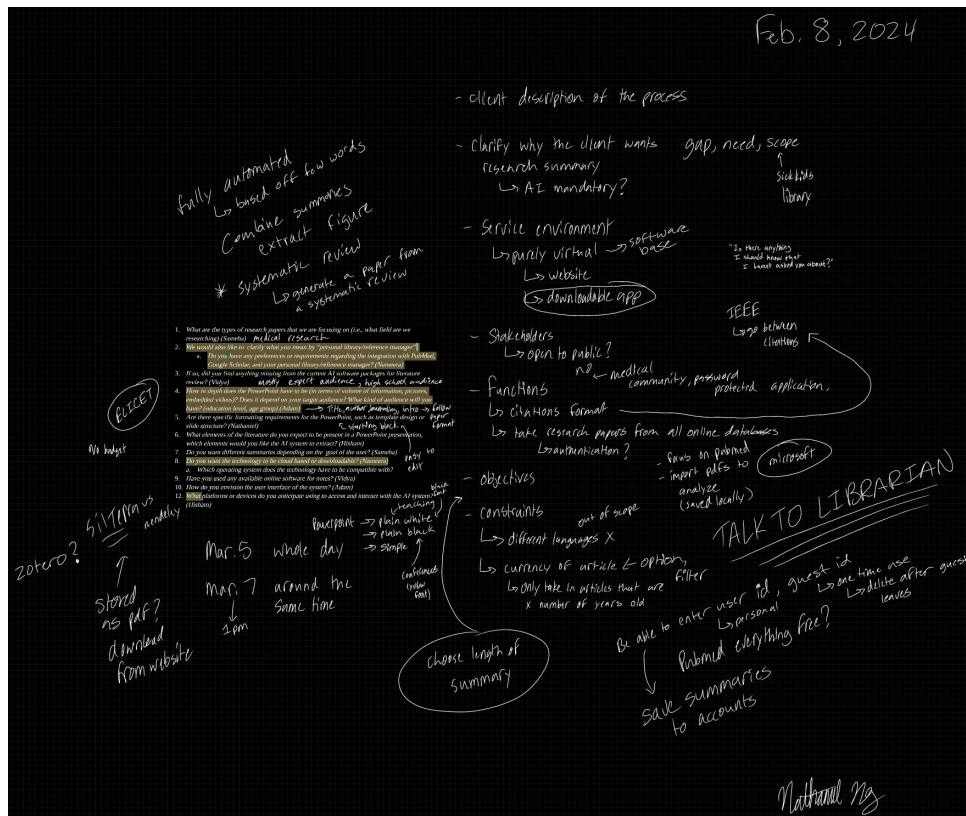 Feb. 8, 2024
- client description of the process
- Clarify why the client wants
research summary
↳ AI mandatory?
gap, need, scope
↑
Sickkids
library
- Service environment
↳ purely virtual → software
base
↳ website
↳ downloadable app
"Is there anything
I should know that
I havent asked you about?"
- Stakeholders
↳ open to public?
no
IEEE
↳ go between
citations
- Functions
← medical
community, password
protected application,
↳ citations format
↳ take research papers from all online databases
↳ authentication?
- focus on pubmed
- import pdfs to
analyze
(saved locally)
microsoft
- objectives
- constraints
out of scope
↳ different languages X
↳ currency of article ← option,
filter
↳ Only take in articles that are
x number of years old
TALK TO LIBRARIAN
Be able to enter user id, guest id
↳ personal
↳ one time use
↳ delete after guest
leaves
Pubmed everything free?
save summaries
to accounts
choose length of
summary
fully automated
↳ based off few words
Combine summaries
extract figure
* systematic review
↳ generate a paper from
a systematic review
1. What are the types of research papers that we are focusing on (i.e., what field are we
researching) (Sameha) medical research
2. We would also like to clarify what you mean by "personal library/reference manager"
a. Do you have any preferences or requirements regarding the integration with PubMed,
Google Scholar, and your personal library/reference manager? (Nameera)
3. If so, did you find anything missing from the current AI software packages for literature
review? (Vidya) mostly expert audience, high school audience
4. How in depth does the PowerPoint have to be (in terms of volume of information, pictures,
embedded videos)? Does it depend on your target audience? What kind of audience will you
have? (education level, age group) (Adam) → Title, author, journal, intro → follow
paper
format
5. Are there specific formatting requirements for the PowerPoint, such as template design or
slide structure? (Nathaniel)
6. What elements of the literature do you expect to be present in a PowerPoint presentation,
which elements would you like the AI system to extract? (Hisham)
7. Do you want different summaries depending on the goal of the user? (Sameha)
8. Do you want the technology to be cloud based or downloadable? (Nameera)
a. Which operating system does the technology have to be compatible with?
9. Have you used any available online software for notes? (Vidya)
10. How do you envision the user interface of the system? (Adam)
12. What platforms or devices do you anticipate using to access and interact with the AI system?
(Hisham)
easy to
edit
ELICET
No budget
Powerpoint → plain white
→ plain black
→ simple
teaching
black
font
conferences
(yellow
font)
vs
mendeley
zotero?
stored
as pdf?
download
from website
Mar. 5 whole day
Mar. 7 around the
same time
↓
1pm
Nathaniel Ng